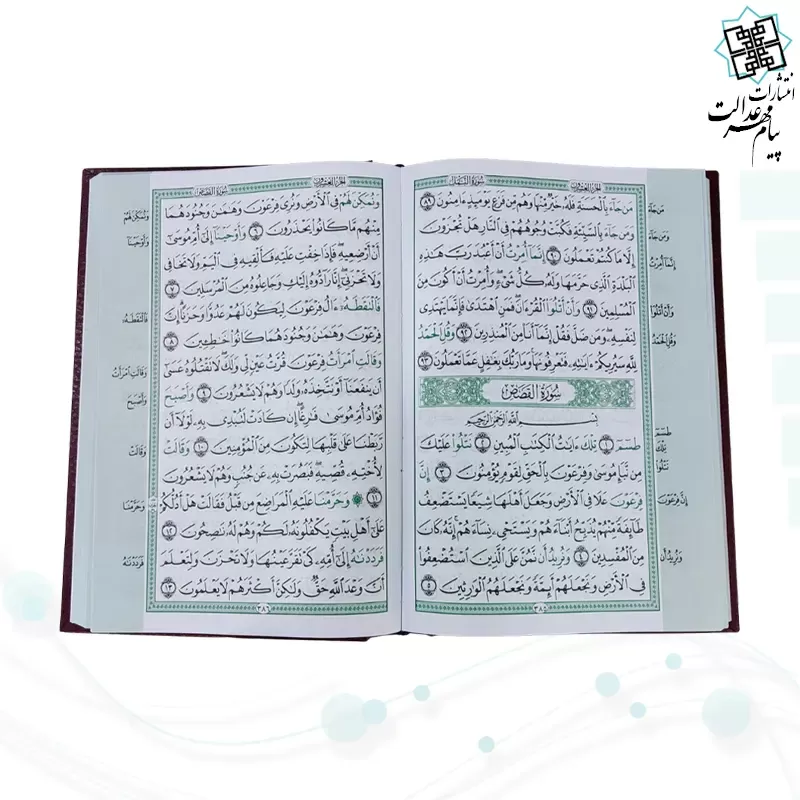 انتشارات
پیام مهر عدالت
الجزء العشرون سُورَةُ النَّمْلِ
مَن جَآءَ بِالْحَسَنَةِ فَلَهُۥ خَيْرٌ مِّنْهَا وَهُم مِّن فَزَعٍ يَوْمَئِذٍ ءَامِنُونَ ٨٩
وَمَن جَآءَ بِالسَّيِّئَةِ فَكُبَّتْ وُجُوهُهُمْ فِى النَّارِ هَلْ تُجْزَوْنَ
إِلَّا مَا كُنتُمْ تَعْمَلُونَ ٩٠ إِنَّمَآ أُمِرْتُ أَنْ أَعْبُدَ رَبَّ هَٰذِهِ
الْبَلْدَةِ الَّذِى حَرَّمَهَا وَلَهُۥ كُلُّ شَىْءٍ وَأُمِرْتُ أَنْ أَكُونَ مِنَ
الْمُسْلِمِينَ ٩١ وَأَنْ أَتْلُوَا۟ الْقُرْءَانَ فَمَنِ اهْتَدَىٰ فَإِنَّمَا يَهْتَدِى
لِنَفْسِهِۦ وَمَن ضَلَّ فَقُلْ إِنَّمَآ أَنَا۠ مِنَ الْمُنذِرِينَ ٩٢ وَقُلِ الْحَمْدُ
لِلَّهِ سَيُرِيكُمْ ءَايَٰتِهِۦ فَتَعْرِفُونَهَا وَمَا رَبُّكَ بِغَٰفِلٍ عَمَّا تَعْمَلُونَ ٩٣
سُورَةُ الْقَصَصِ
بِسْمِ اللَّهِ الرَّحْمَٰنِ الرَّحِيمِ
طسٓمٓ ١ تِلْكَ ءَايَٰتُ الْكِتَٰبِ الْمُبِينِ ٢ نَتْلُوا۟ عَلَيْكَ
مِن نَّبَإِ مُوسَىٰ وَفِرْعَوْنَ بِالْحَقِّ لِقَوْمٍ يُؤْمِنُونَ ٣ إِنَّ
فِرْعَوْنَ عَلَا فِى الْأَرْضِ وَجَعَلَ أَهْلَهَا شِيَعًا يَسْتَضْعِفُ
طَآئِفَةً مِّنْهُمْ يُذَبِّحُ أَبْنَآءَهُمْ وَيَسْتَحْىِۦ نِسَآءَهُمْ إِنَّهُۥ كَانَ
مِنَ الْمُفْسِدِينَ ٤ وَنُرِيدُ أَن نَّمُنَّ عَلَى الَّذِينَ اسْتُضْعِفُوا۟
فِى الْأَرْضِ وَنَجْعَلَهُمْ أَئِمَّةً وَنَجْعَلَهُمُ الْوَٰرِثِينَ ٥
٣٨٥
مَن جَآءَ
وَمَن جَآءَ
إِنَّمَآ أُمِرْتُ
وَأَنْ أَتْلُوَا۟
وَقُلِ الْحَمْدُ
طسٓمٓ
تِلْكَ
نَتْلُوا۟
إِنَّ فِرْعَوْنَ
وَنُرِيدُ أَن
الجزء العشرون سُورَةُ الْقَصَصِ
وَنُمَكِّنَ لَهُمْ فِى الْأَرْضِ وَنُرِىَ فِرْعَوْنَ وَهَٰمَٰنَ وَجُنُودَهُمَا
مِنْهُم مَّا كَانُوا۟ يَحْذَرُونَ ٦ وَأَوْحَيْنَآ إِلَىٰٓ أُمِّ مُوسَىٰٓ
أَنْ أَرْضِعِيهِ فَإِذَا خِفْتِ عَلَيْهِ فَأَلْقِيهِ فِى الْيَمِّ وَلَا تَخَافِى
وَلَا تَحْزَنِىٓ إِنَّا رَآدُّوهُ إِلَيْكِ وَجَاعِلُوهُ مِنَ الْمُرْسَلِينَ ٧
فَالْتَقَطَهُۥٓ ءَالُ فِرْعَوْنَ لِيَكُونَ لَهُمْ عَدُوًّا وَحَزَنًا إِنَّ
فِرْعَوْنَ وَهَٰمَٰنَ وَجُنُودَهُمَا كَانُوا۟ خَٰطِـِٔينَ ٨
وَقَالَتِ امْرَأَتُ فِرْعَوْنَ قُرَّتُ عَيْنٍ لِّى وَلَكَ لَا تَقْتُلُوهُ عَسَىٰٓ
أَن يَنفَعَنَآ أَوْ نَتَّخِذَهُۥ وَلَدًا وَهُمْ لَا يَشْعُرُونَ ٩ وَأَصْبَحَ
فُؤَادُ أُمِّ مُوسَىٰ فَٰرِغًا إِن كَادَتْ لَتُبْدِى بِهِۦ لَوْلَآ أَن
رَّبَطْنَا عَلَىٰ قَلْبِهَا لِتَكُونَ مِنَ الْمُؤْمِنِينَ ١٠ وَقَالَتْ
لِأُخْتِهِۦ قُصِّيهِ فَبَصُرَتْ بِهِۦ عَن جُنُبٍ وَهُمْ لَا يَشْعُرُونَ
١١ وَحَرَّمْنَا عَلَيْهِ الْمَرَاضِعَ مِن قَبْلُ فَقَالَتْ هَلْ أَدُلُّكُمْ
عَلَىٰٓ أَهْلِ بَيْتٍ يَكْفُلُونَهُۥ لَكُمْ وَهُمْ لَهُۥ نَٰصِحُونَ ١٢
فَرَدَدْنَٰهُ إِلَىٰٓ أُمِّهِۦ كَىْ تَقَرَّ عَيْنُهَا وَلَا تَحْزَنَ وَلِتَعْلَمَ
أَنَّ وَعْدَ اللَّهِ حَقٌّ وَلَٰكِنَّ أَكْثَرَهُمْ لَا يَعْلَمُونَ ١٣
٣٨٦
وَنُمَكِّنَ لَهُمْ
وَأَوْحَيْنَآ
فَالْتَقَطَهُۥٓ
وَقَالَتِ امْرَأَتُ
وَأَصْبَحَ
وَقَالَتْ
وَحَرَّمْنَا
فَرَدَدْنَٰهُ